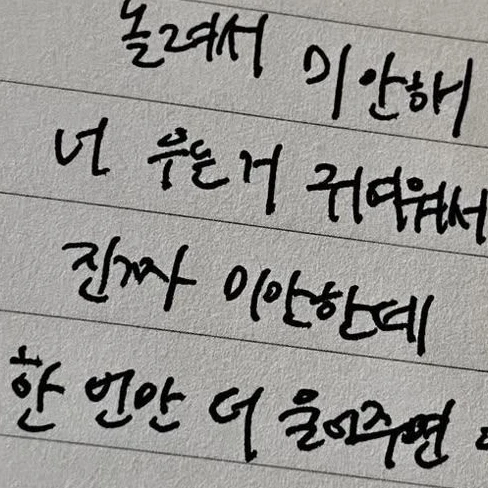 놀려서 미안해
너 우는거 귀여워서
진짜 미안한데
한 번만 더 울어주면